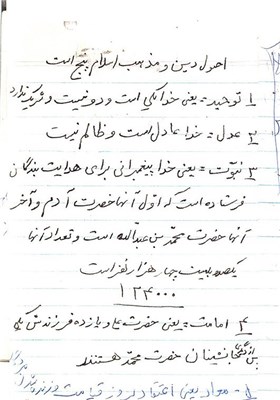 اصول دین و مذهب اسلام پنج است
۱ توحید = یعنی خدا یکی است و دو نیست و شریک ندارد
۲ عدل = خدا عادل است و ظالم نیست
۳ نبوّت = یعنی خدا پیغمبرانی برای هدایت بندگان
فرستاده است که اوّل آنها حضرت آدم و آخر
آنها حضرت محمّد بن عبدالله است و تعداد آنها
یکصد بیست چهار هزار نفر است
۱۲۴۰۰۰
۴ امامت = یعنی حضرت علی و یازده فرزندش یکی
پس از دیگری جانشینان حضرت محمّد هستند
معاد یعنی اعتقاد بروز قیامت و زنده